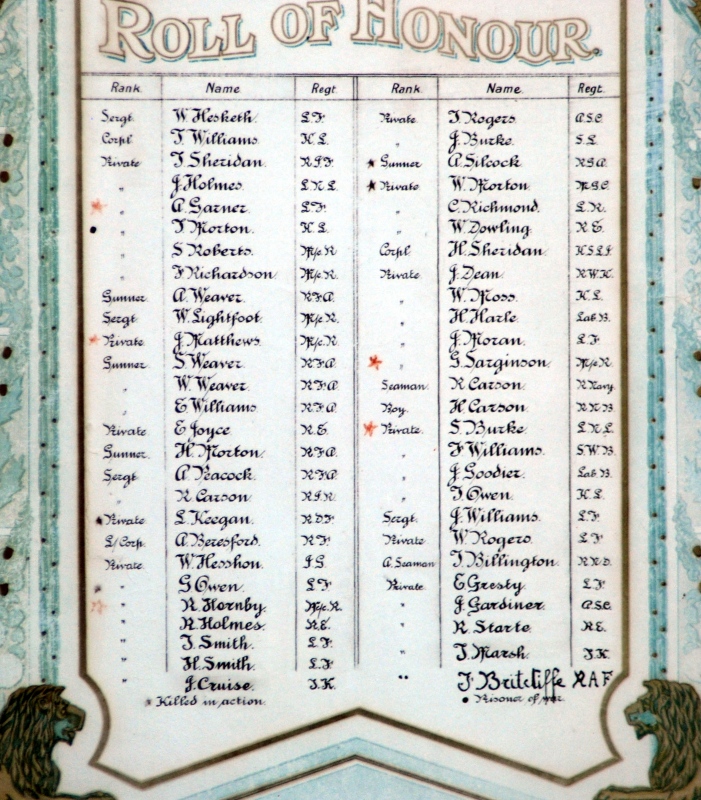 ROLL OF HONOUR.
Rank. Name. Regt.
Sergt. W. Hesketh. L.F.
Corpl. T. Williams. K.L.
Private. T. Sheridan. R.I.F.
" J. Holmes. L.N.L.
* " A. Garner. L.F.
• " T. Morton. K.L.
" S. Roberts. M/c.R.
" F. Richardson. M/c.R.
Gunner. A. Weaver. R.F.A.
Sergt. W. Lightfoot. M/c.R.
* Private. J. Matthews. M/c.R.
Gunner. S. Weaver. R.F.A.
" W. Weaver. R.F.A.
" E. Williams. R.F.A.
Private. E. Joyce. R.E.
Gunner. H. Morton. R.F.A.
Sergt. A. Peacock. R.F.A.
" R. Carson.
* Private. L. Keegan. R.D.F.
L/Corp. A. Beresford. R.F.
Private. W. Hesshon.
" G. Owen. L.F.
* " R. Hornby. M/c.R.
" R. Holmes. R.E.
" T. Smith. L.F.
" H. Smith. L.F.
" J. Cruise.
* Killed in action.
Rank. Name. Regt.
Private. T. Rogers. A.S.C.
" J. Burke. S.L.
* Gunner. A. Silcock. R.G.A.
* Private. W. Morton. M.G.C.
" C. Richmond. L.R.
" W. Dowling. R.E.
Corpl. H. Sheridan. K.S.L.I.
Private. J. Dean. R.W.K.
" W. Moss. K.L.
" H. Harle. Lab B.
" J. Moran. L.F.
* " G. Sarginson. M/c.R.
Seaman. R. Carson. R. Navy.
Boy. H. Carson. R.N.B.
* Private. S. Burke. L.N.L.
" F. Williams. S.W.B.
" J. Goodier. Lab B.
" T. Owen. K.L.
Sergt. J. Williams. L.F.
Private. W. Rogers. L.F.
A. Seaman. T. Billington. R.N.D.
Private. E. Gresty. L.F.
" J. Gardiner. A.S.C.
" R. Starte. R.E.
" T. Marsh.
" F. Britcliffe RAF
• Prisoner of war.